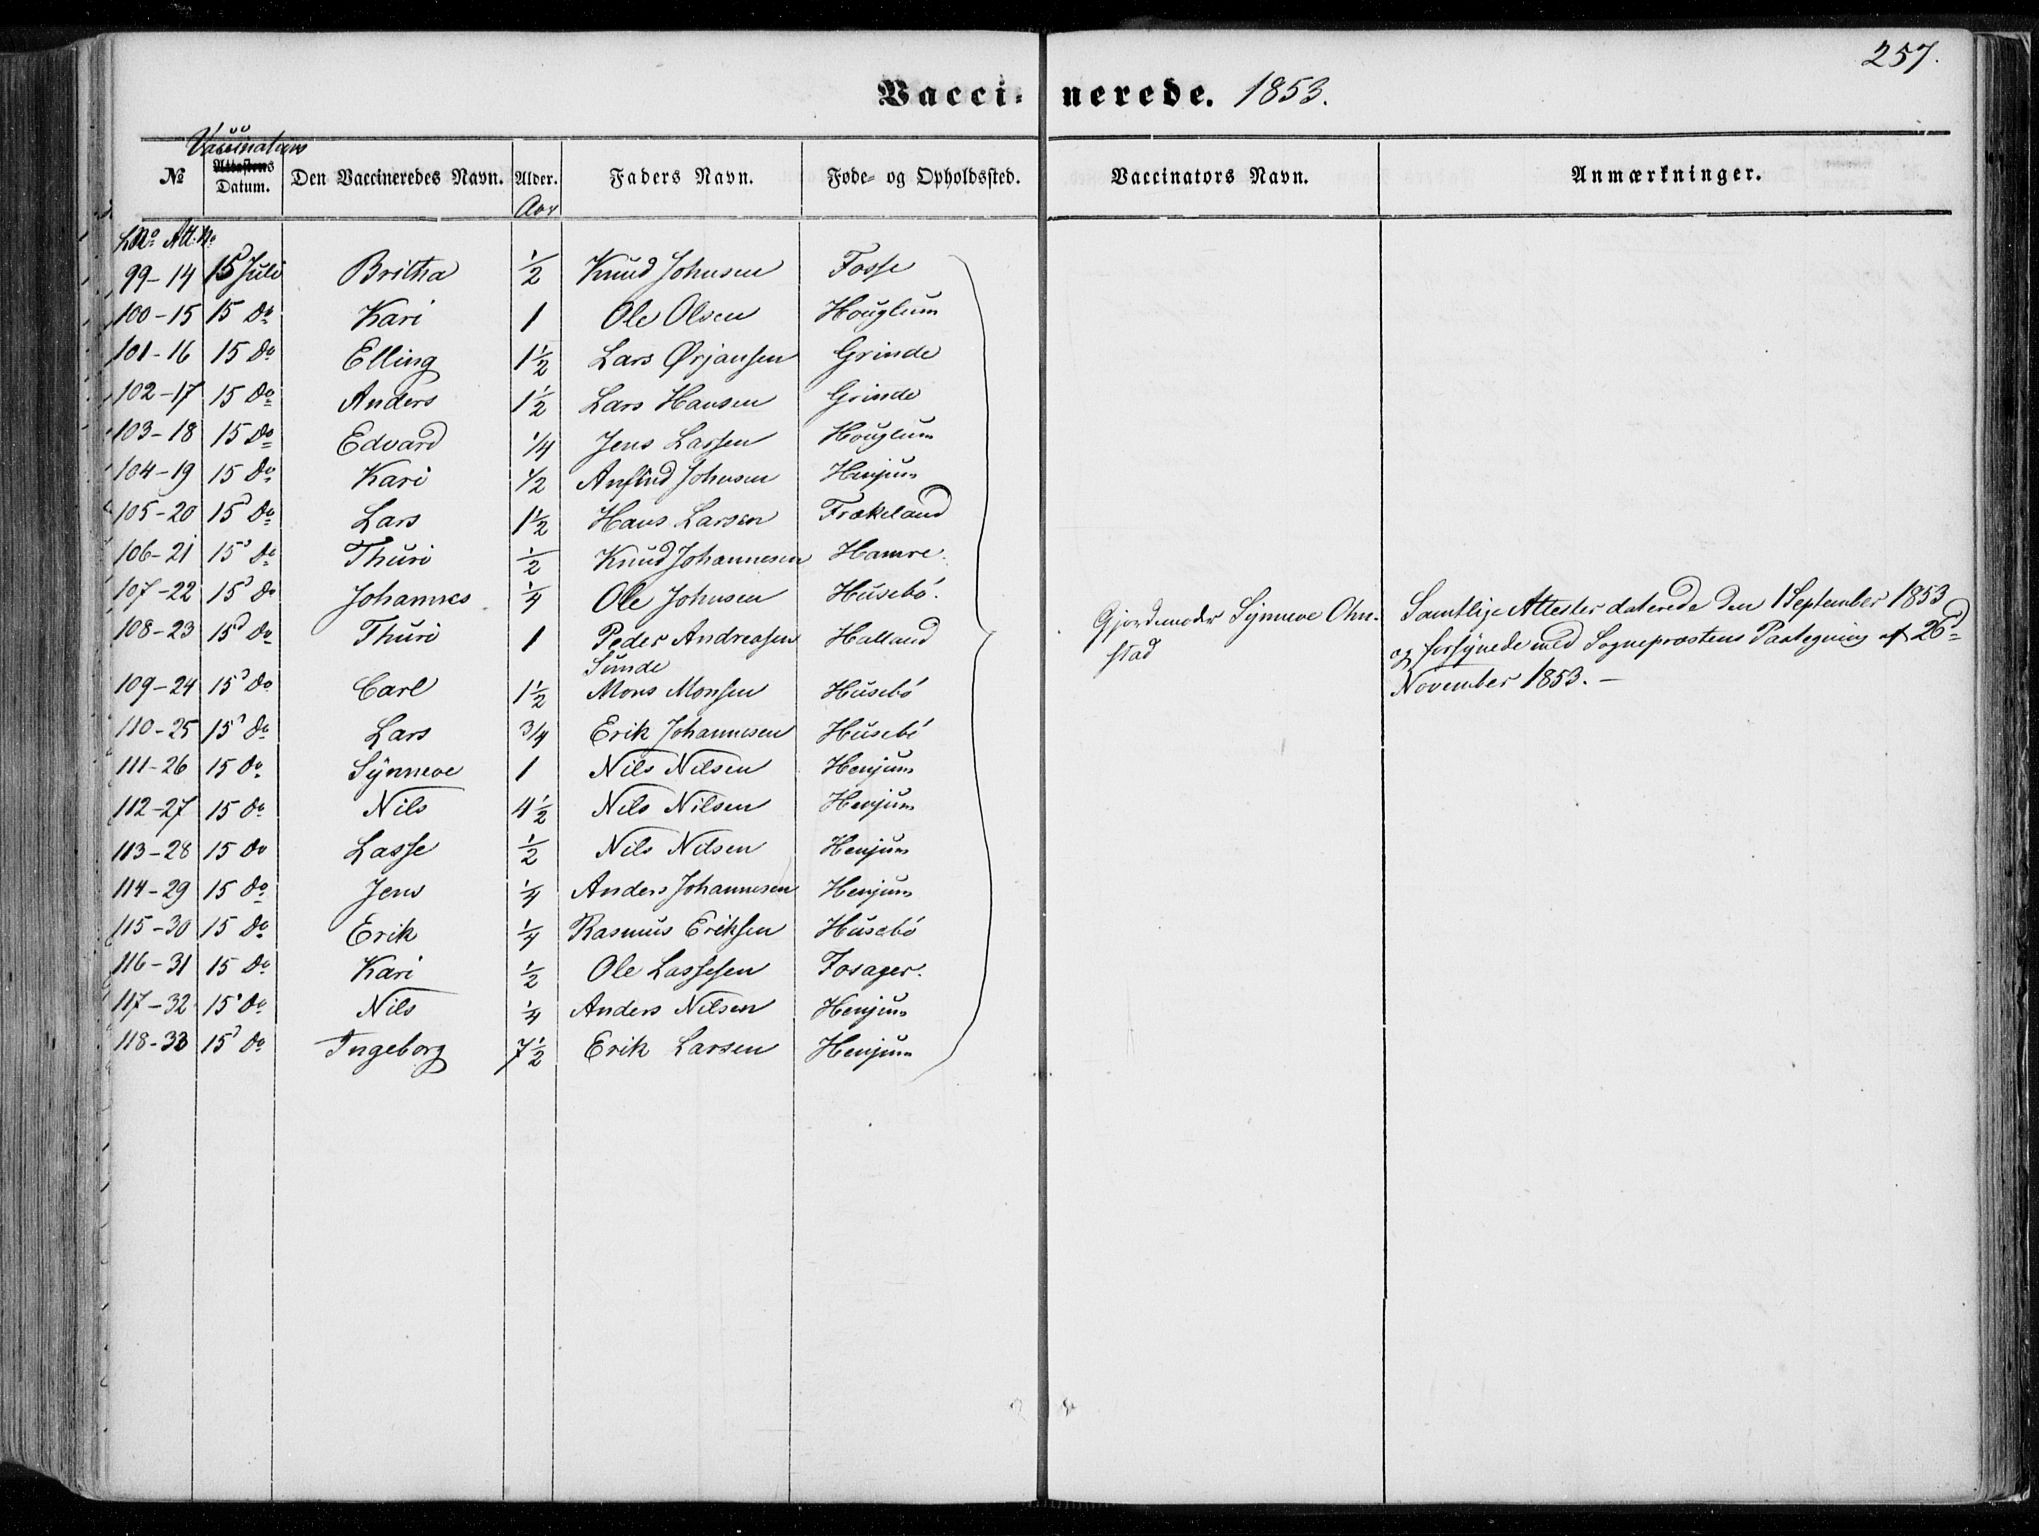 257.
Vaccinerede. 1853.
Vaccinations
№ Attestens Datum. Den Vaccineredes Navn. Alder. Faders Navn. Føde- og Opholdssted. Vaccinators Navn. Anmærkninger.
Aar
LNo Att. No
99-14 15 Juli Britha 1/2 Knud Johnsen Fosse
100-15 15 do Kari 1 Ole Olsen Houglum
101-16 15 do Elling 1 1/2 Lars Ørjansen Grinde
102-17 15 do Anders 1 1/2 Lars Hansen Grinde
103-18 15 do Edvard 1/4 Jens Lassen Houglum
104-19 15 do Kari 1/2 Anfind Johnsen Henjum
105-20 15 do Lars 1 1/2 Hans Larsen Frækeland
106-21 15 do Thuri 1/2 Knud Johannesen Hamre
107-22 15 do Johannes 1/4 Ole Johnsen Husebö.
108-23 15 do Thuri 1 Peder Andreasen Halland
Sunde
109-24 15 do Carl 1 1/2 Mons Monsen Husebö
110-25 15 do Lars 3/4 Erik Johannesen Husebö
111-26 15 do Synneve 1 Nils Nilsen Henjum
112-27 15 do Nils 4 1/2 Nils Nilsen Henjum
113-28 15 do Lasse 1/2 Nils Nilsen Henjum
114-29 15 do Jens 1/4 Anders Johannesen Henjum
115-30 15 do Erik 1/4 Rasmus Eriksen Husebö
116-31 15 do Kari 1/2 Ole Lassesen Fosager.
117-32 15 do Nils 1/4 Anders Nilsen Henjum
118-33 15 do Ingeborg 7 1/2 Erik Larsen Henjum
Gjordemoder Synneve Ohn-
stad
Samtlige Attester daterede den 1 September 1853
og forsynede med Sognepræstens Paategning af 26d
November 1853. —